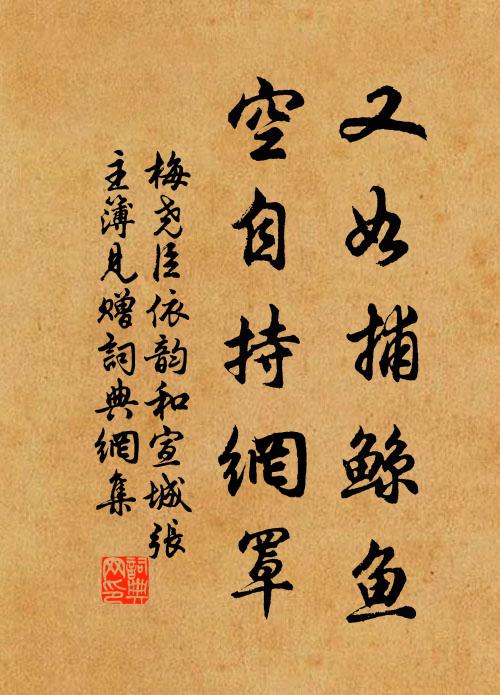 又如捕鲸鱼
空自持網罩
梅尧臣依韵和宣城張
主簿見赠詞典網集
詞典网印